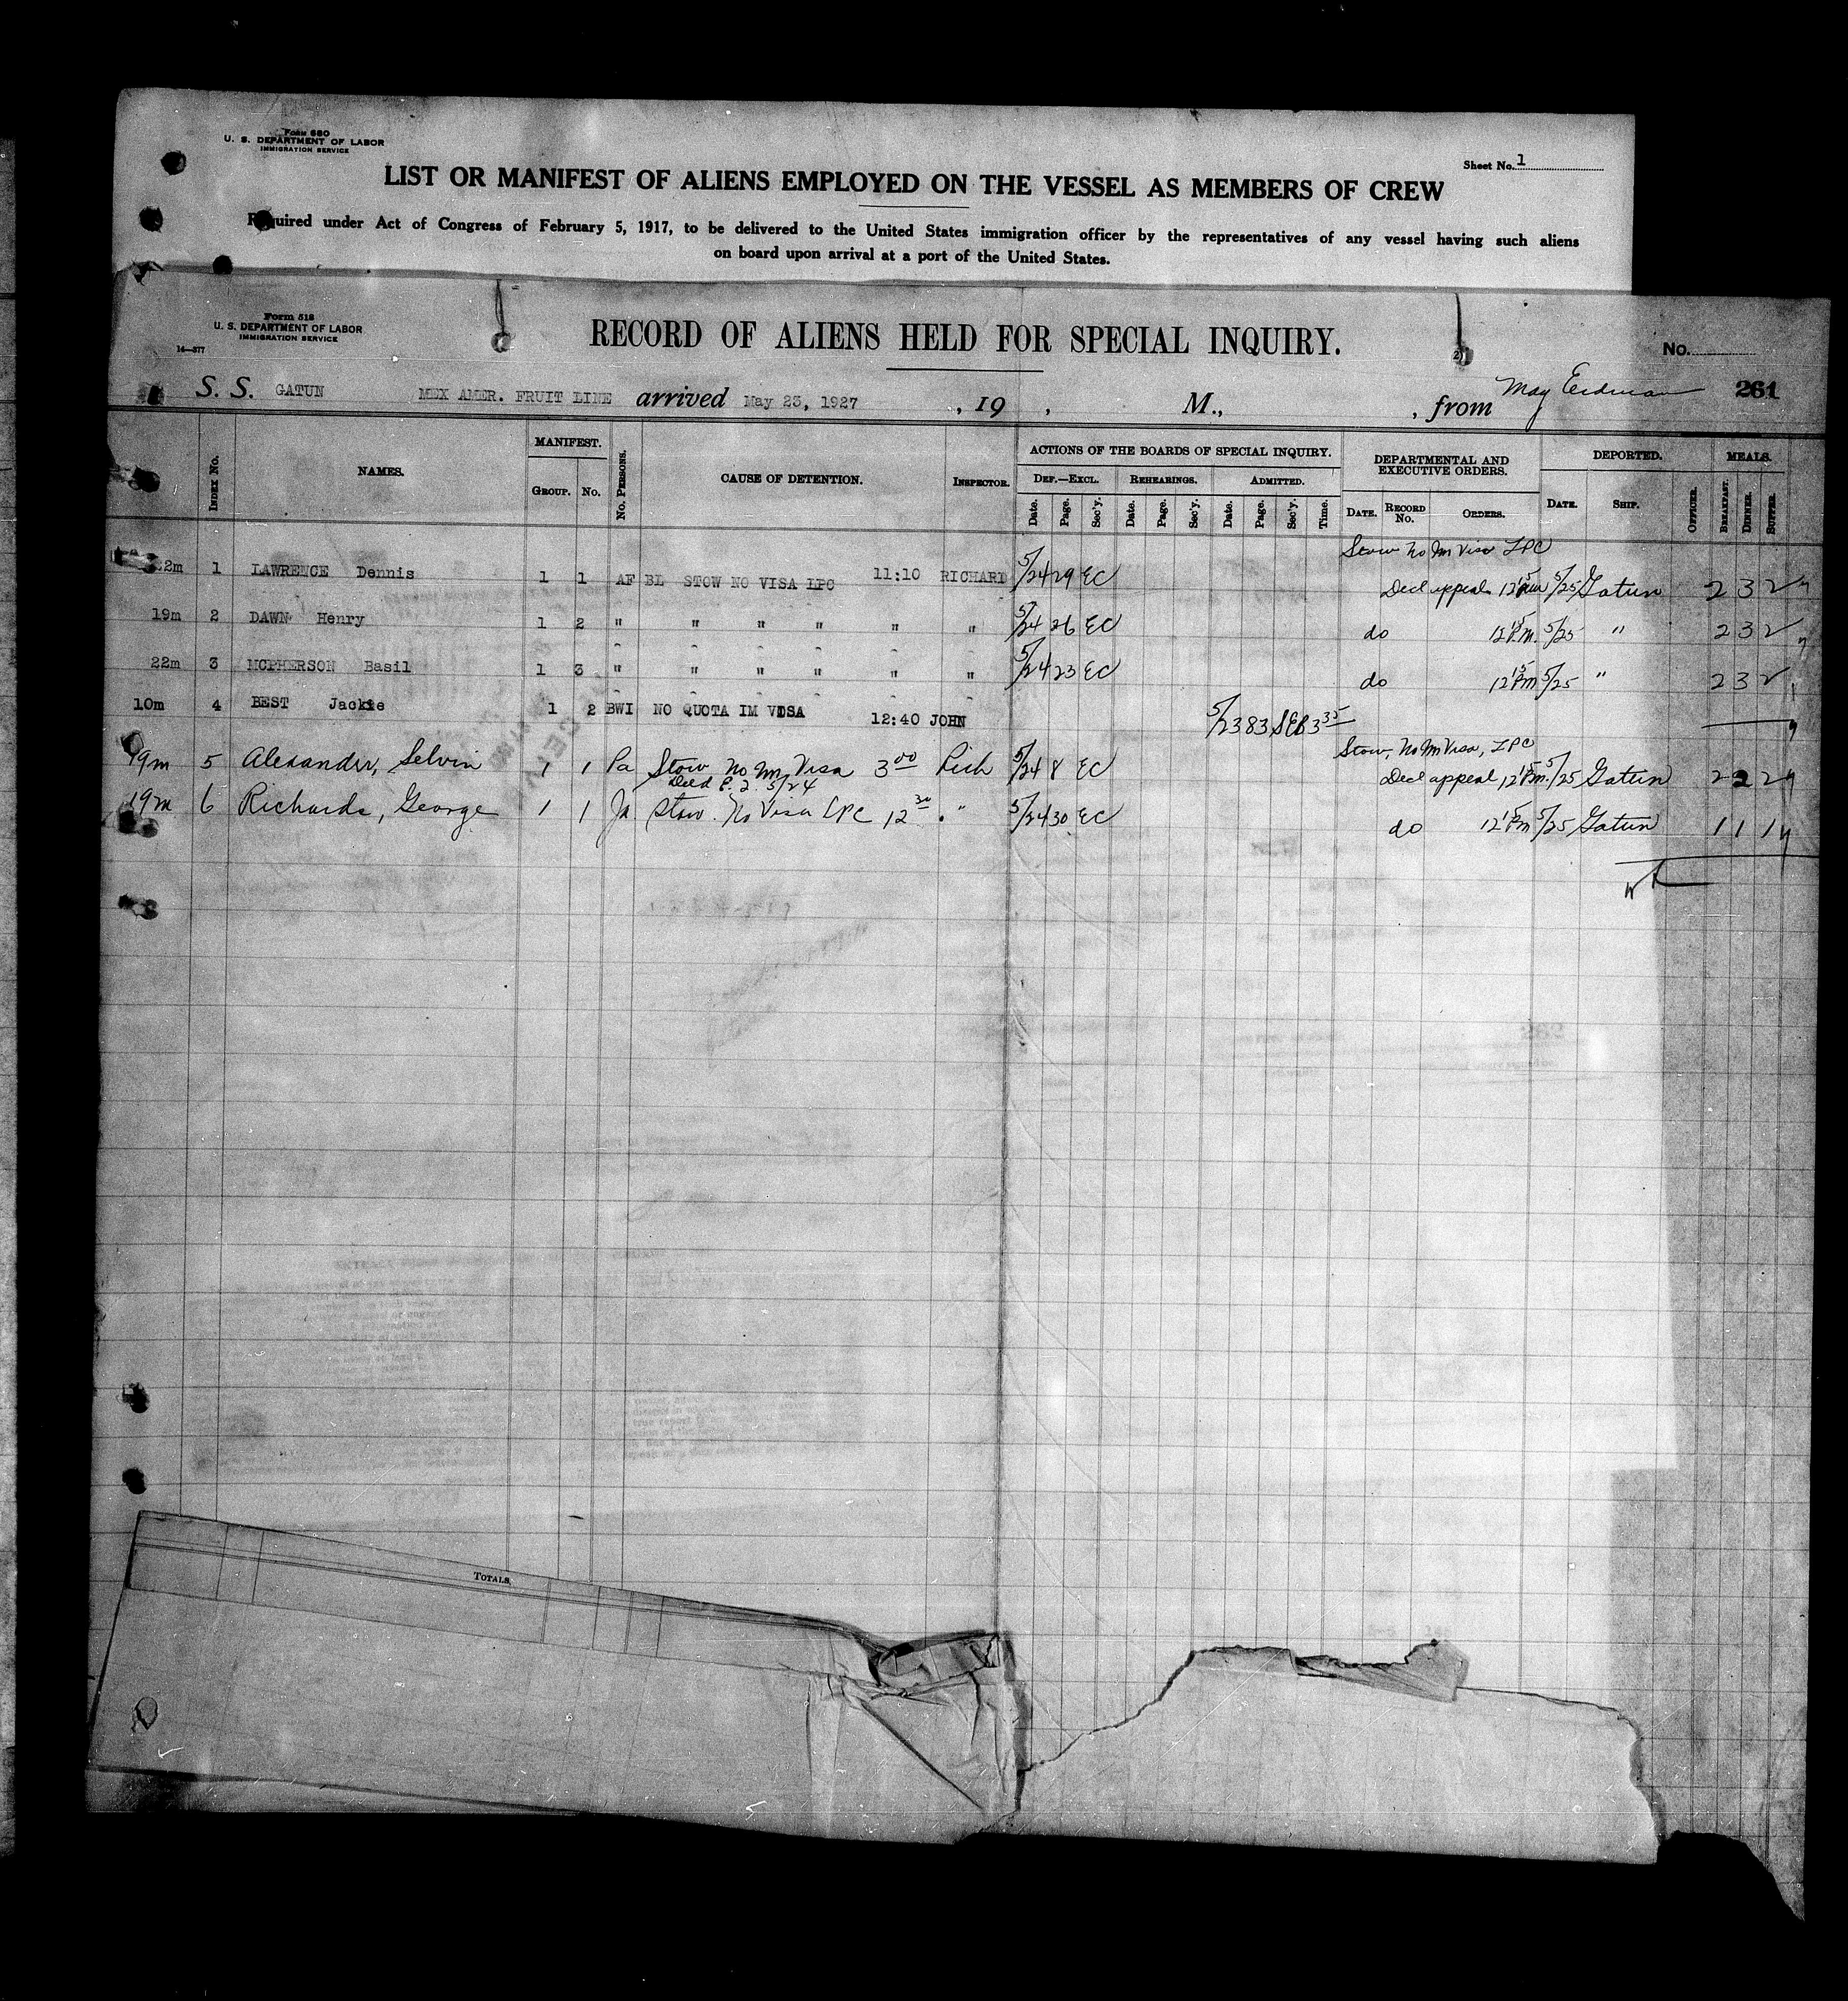 Form 680
U. S. DEPARTMENT OF LABOR
IMMIGRATION SERVICE
Sheet No. 1
LIST OR MANIFEST OF ALIENS EMPLOYED ON THE VESSEL AS MEMBERS OF CREW
Required under Act of Congress of February 5, 1917, to be delivered to the United States immigration officer by the representatives of any vessel having such aliens
on board upon arrival at a port of the United States.
Form 518
U. S. DEPARTMENT OF LABOR
IMMIGRATION SERVICE
14—377
RECORD OF ALIENS HELD FOR SPECIAL INQUIRY.
No.
S. S. GATUN MEX AMER. FRUIT LINE arrived May 23, 1927 , 19 , M., , from May 261
INDEX No. NAMES. MANIFEST. GROUP. No. No. PERSONS. CAUSE OF DETENTION. INSPECTOR. ACTIONS OF THE BOARDS OF SPECIAL INQUIRY. DEF.—EXCL. REHEARINGS. ADMITTED. DEPARTMENTAL AND EXECUTIVE ORDERS. DEPORTED. MEALS.
Date. Page. Sec'y. Date. Page. Sec'y. Date. Page. Sec'y. Time. DATE. RECORD No. ORDERS. DATE. SHIP. OFFICER. BREAKFAST. DINNER. SUPPER.
Stow no Im Visa LPC
22m 1 LAWRENCE Dennis 1 1 AF BL STOW NO VISA LPC 11:10 RICHARD 5/24 29 EC Decl appeal 12 15 PM 5/25 Gatun 2 3 2
19m 2 DAWN Henry 1 2 " " " " " " 5/24 26 EC do 12 15 P.M. 5/25 " 2 3 2
22m 3 MCPHERSON Basil 1 3 " " " " " " 5/24 23 EC do 12 15 PM 5/25 " 2 3 2
10m 4 BEST Jackie 1 2 BWI NO QUOTA IM VISA 12:40 JOHN 5/23 83 SEB 3 35
Stow, No Im Visa, LPC
19m 5 Alexander, Selvin 1 1 Pa Stow no Im Visa 3 00 Rich 5/24 8 EC Decl appeal 12 15 PM. 5/25 Gatun 2 2 2
5/24
19m 6 Richards, George 1 1 Ja Stow. No Visa LPC 12 30 " 5/24 30 EC do 12 15 PM 5/25 Gatun 1 1 1
TOTALS,